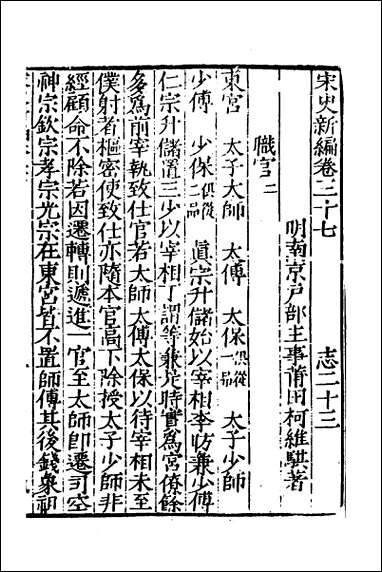 宋史新編卷三十七　志二十三
明南京戶部主事莆田柯維騏著
職官二
東宮　太子太師　太傅　太保俱從一品　太子少師
少傅　少保俱從　眞宗升儲始以宰相李昉兼少傅
仁宗升儲置三少以宰相丁謂等兼是時實爲宮僚餘
多爲前宰執致仕官若太師太傅太保以待宰相未至
僕射者樞密使致仕亦隨本官高下除授太子少師非
經顧命不除若因遷轉則遞進一官至太師即遷司空
神宗欽宗孝宗光宗在東宮皆不置師傅其後錢象祖